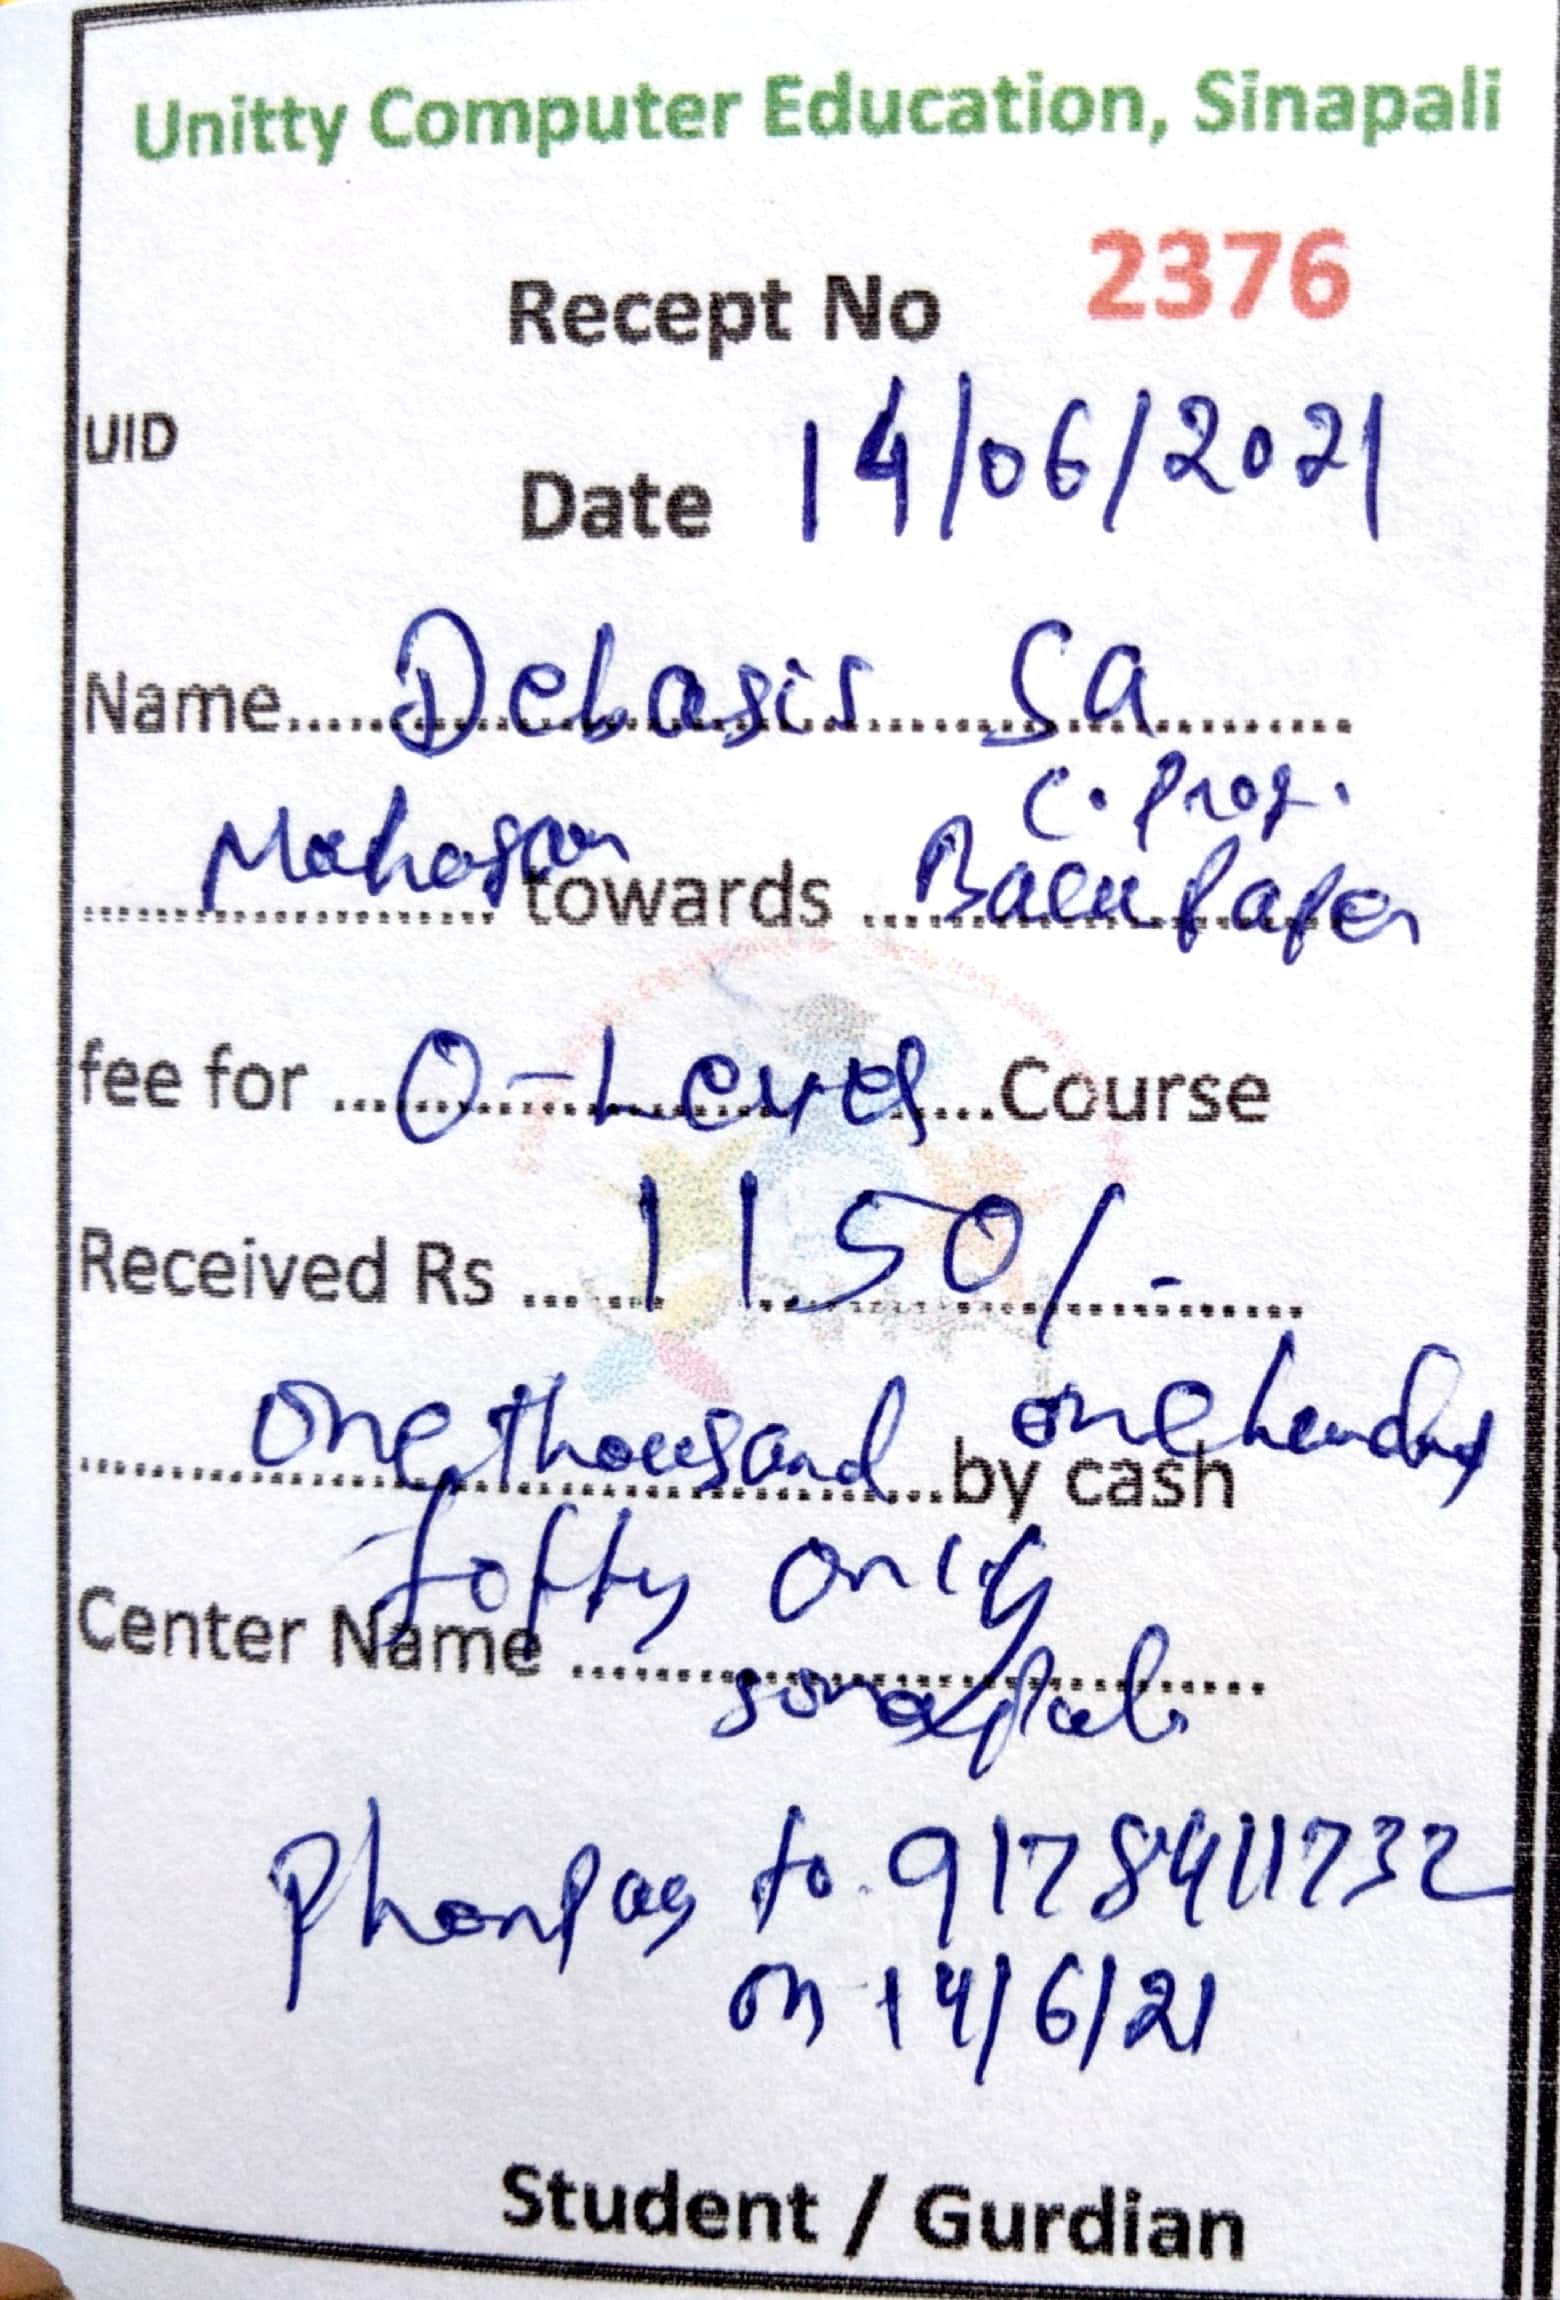 Unitty Computer Education, Sinapali
Recept No 2376
UID
Date 14/06/2021
Name..... Debasis Sa
C. Prog.
Mahajan towards Back Paper
fee for ... O-Level ...Course
Received Rs ... 1150/-
One thousand by cash one hundred
fifty only
Center Name
sinapali
Phonpay to 9178911732
on 14/6/21
Student / Gurdian